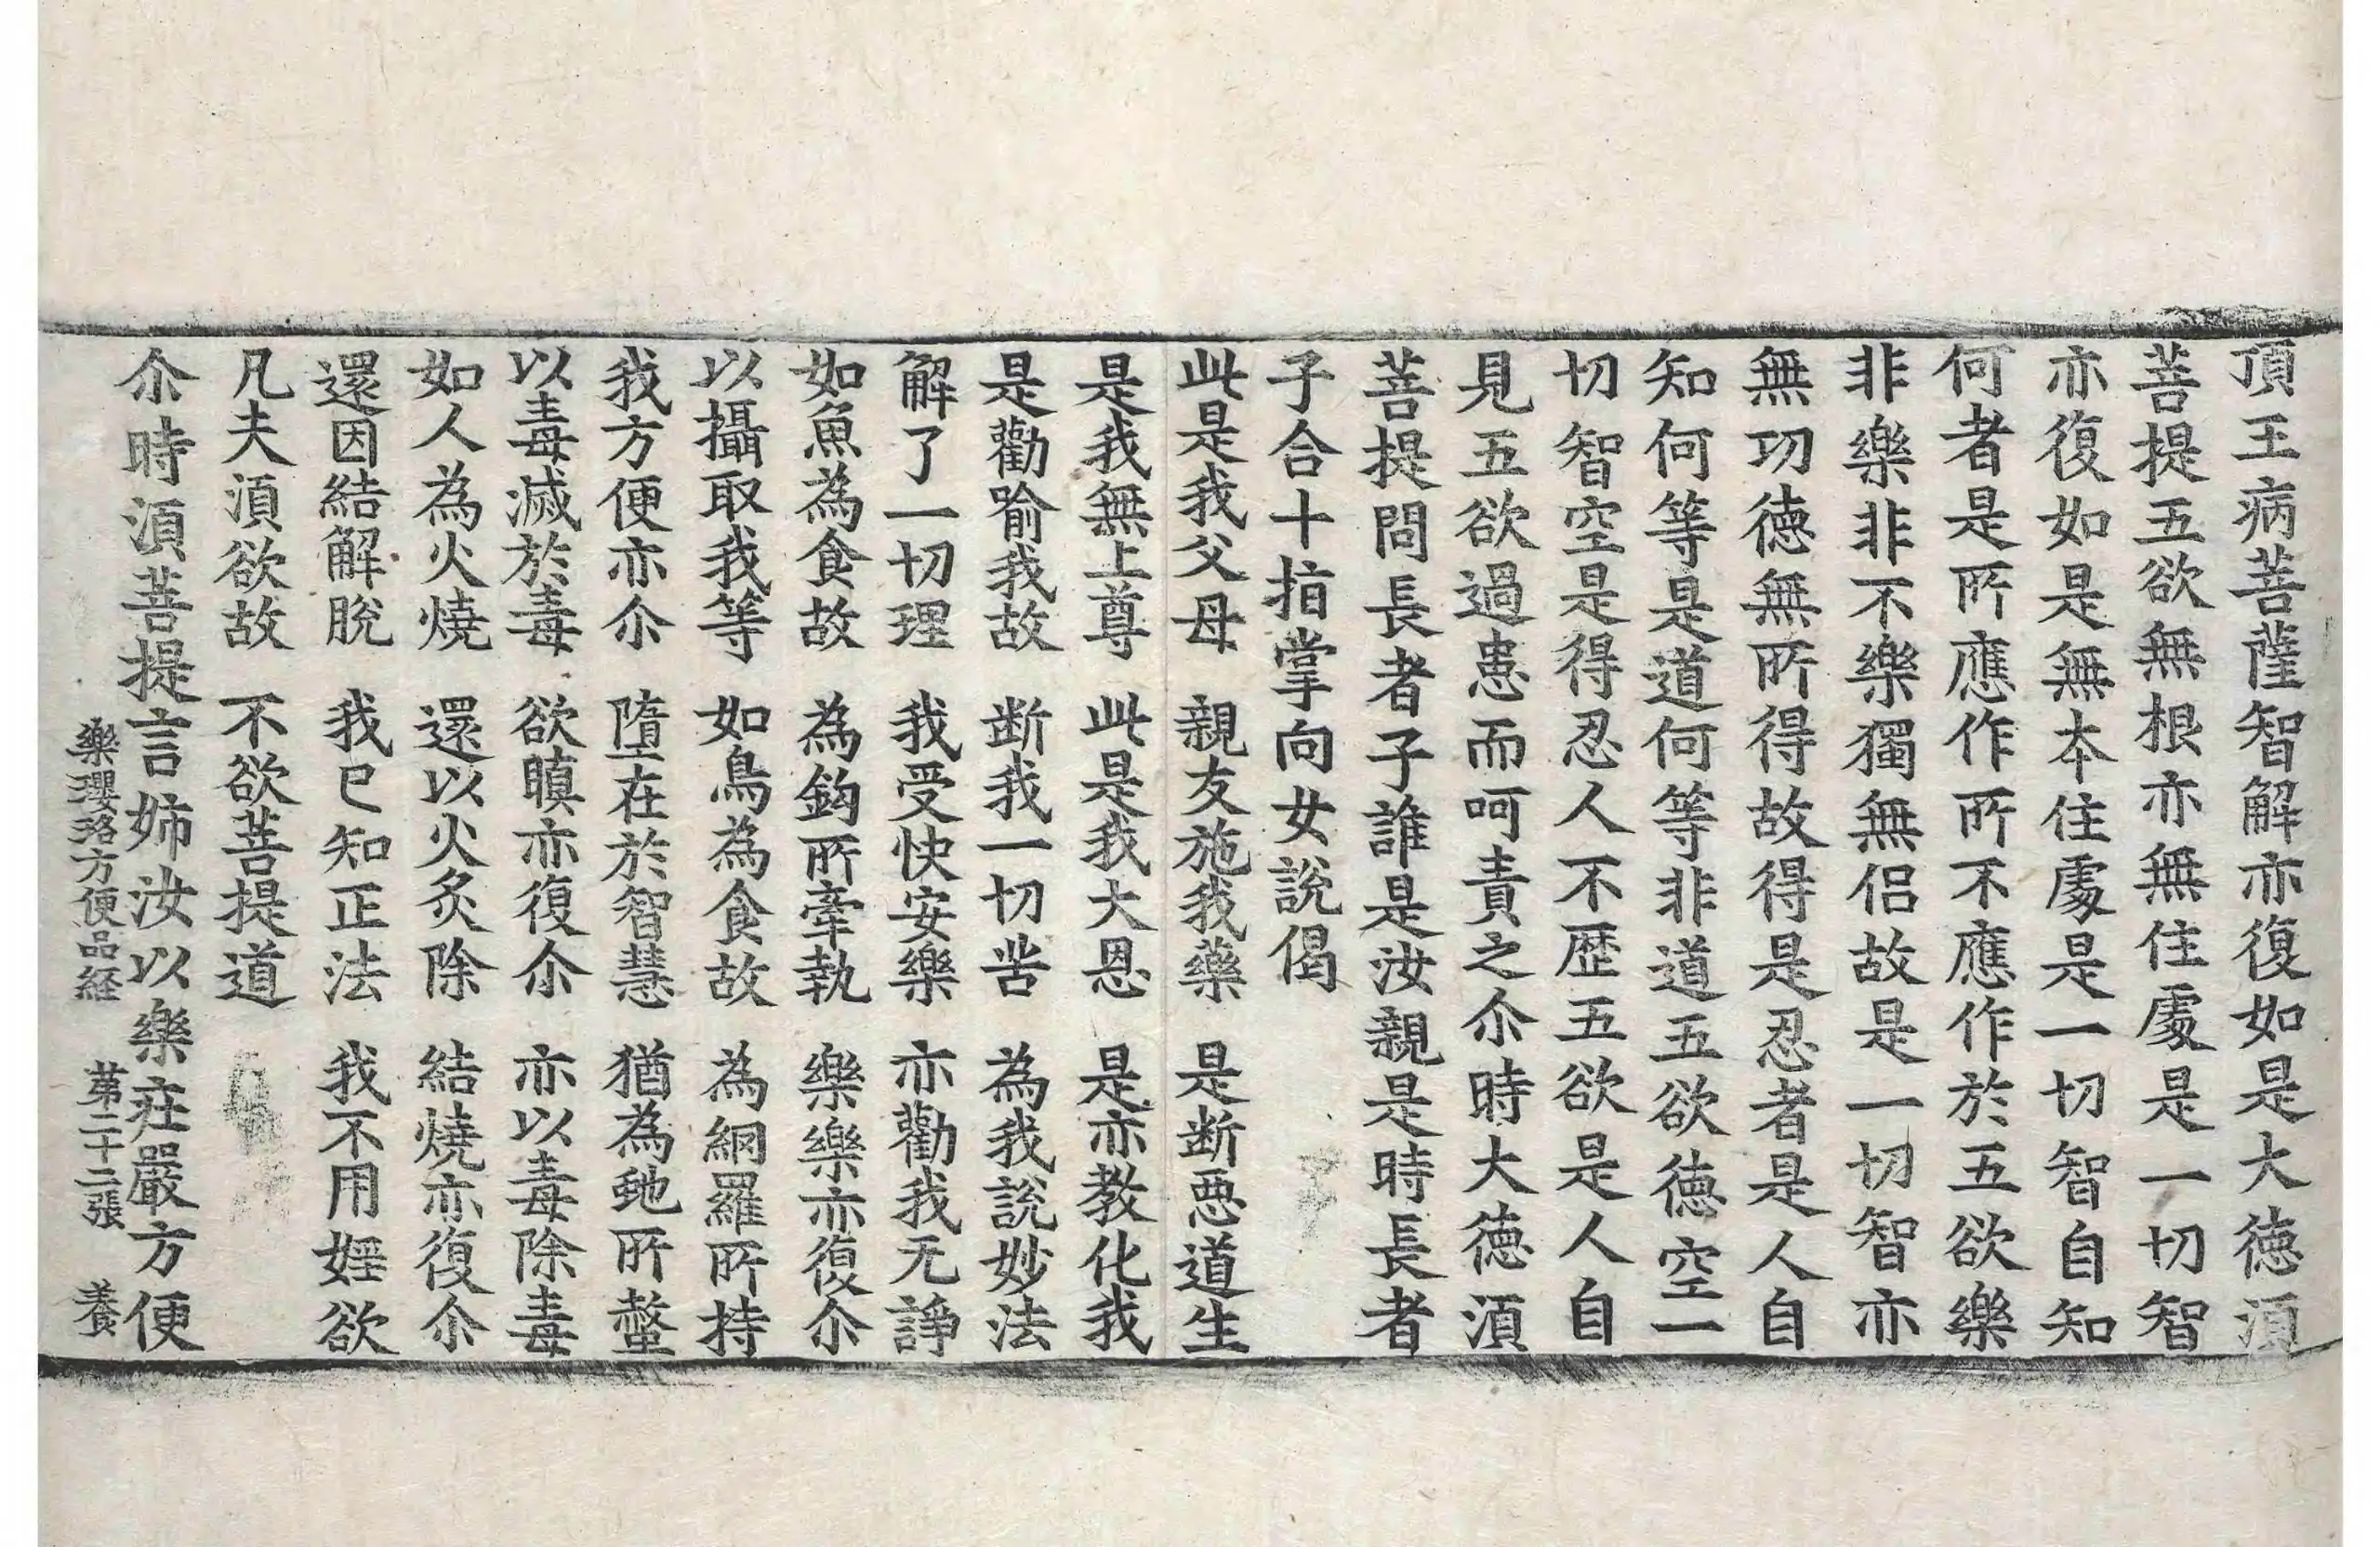 頂王病菩薩智解亦復如是大徳湏
菩提五欲無根亦無住處是一切智
亦復如是無本住處是一切智自知
何者是所應作所不應作於五欲樂
非樂非不樂獨無侶故是一切智亦
無功徳無所得故得是忍者是人自
知何等是道何等非道五欲徳空一
切智空是得忍人不歷五欲是人自
見五欲過患而呵責之尒時大徳湏
菩提問長者子誰是汝親是時長者
子合十指掌向女說偈
此是我父母　親友施我藥　是断悪道生
是我無上尊　此是我大恩　是亦教化我
是勸喻我故　断我一切苦　為我說妙法
解了一切理　我受快安樂　亦勸我无諍
如魚為食故　為鈎所牽執　樂樂亦復尒
以攝取我等　如鳥為食故　為網羅所持
我方便亦尒　墮在於智慧　猶為虵所螫
以毒滅於毒　欲瞋亦復尒　亦以毒除毒
如人為火燒　還以火炙除　結燒亦復尒
還因結解脫　我已知正法　我不用婬欲
凡夫湏欲故　不欲菩提道
尒時湏菩提言姉汝以樂莊嚴方便
樂瓔珞方便品経　第二十二張　養